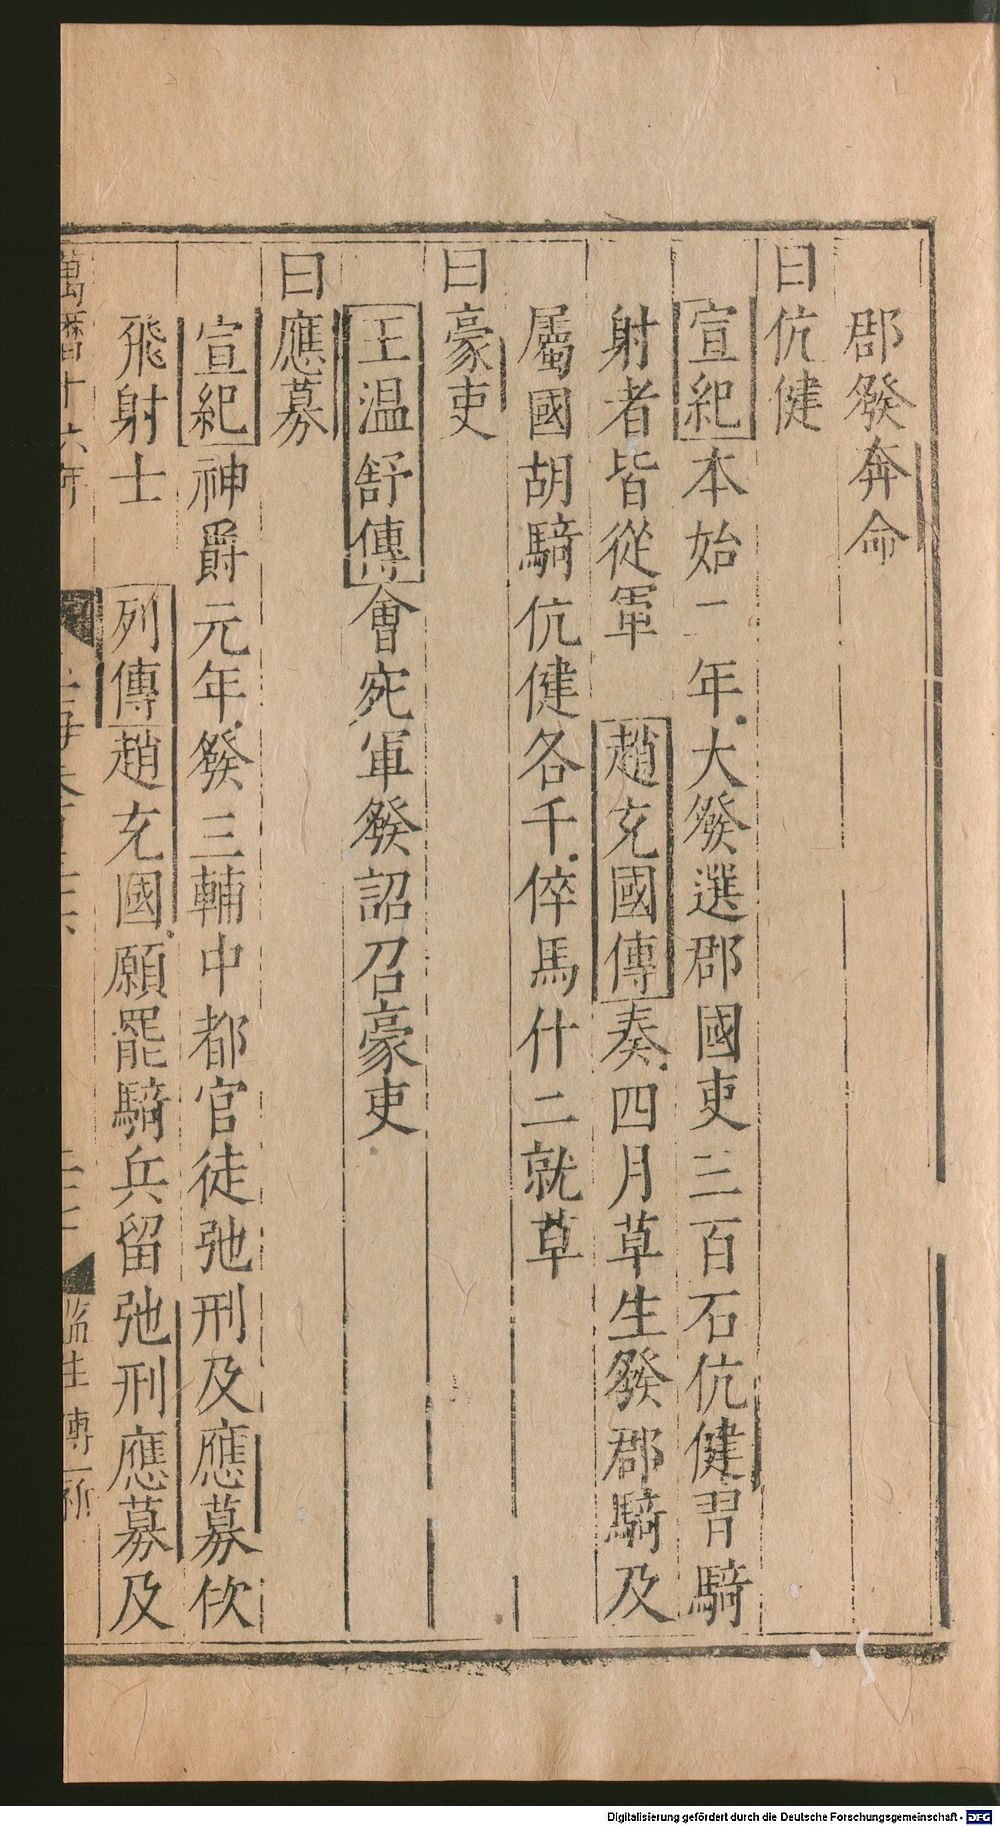 郡發奔命
曰伉健
宣紀本始二年大發選郡國吏三百石伉健習騎
射者皆從軍 趙充國傳奏四月草生發郡騎及
屬國胡騎伉健各千倅馬什二就草
曰豪吏
王温舒傳會宛軍發詔召豪吏
曰應募
宣紀神爵元年發三輔中都官徒弛刑及應募佽
飛射士 列傳趙充國願罷騎兵留弛刑應募及
萬曆十六年
Digitalisierung gefördert durch die Deutsche Forschungsgemeinschaft - DFG